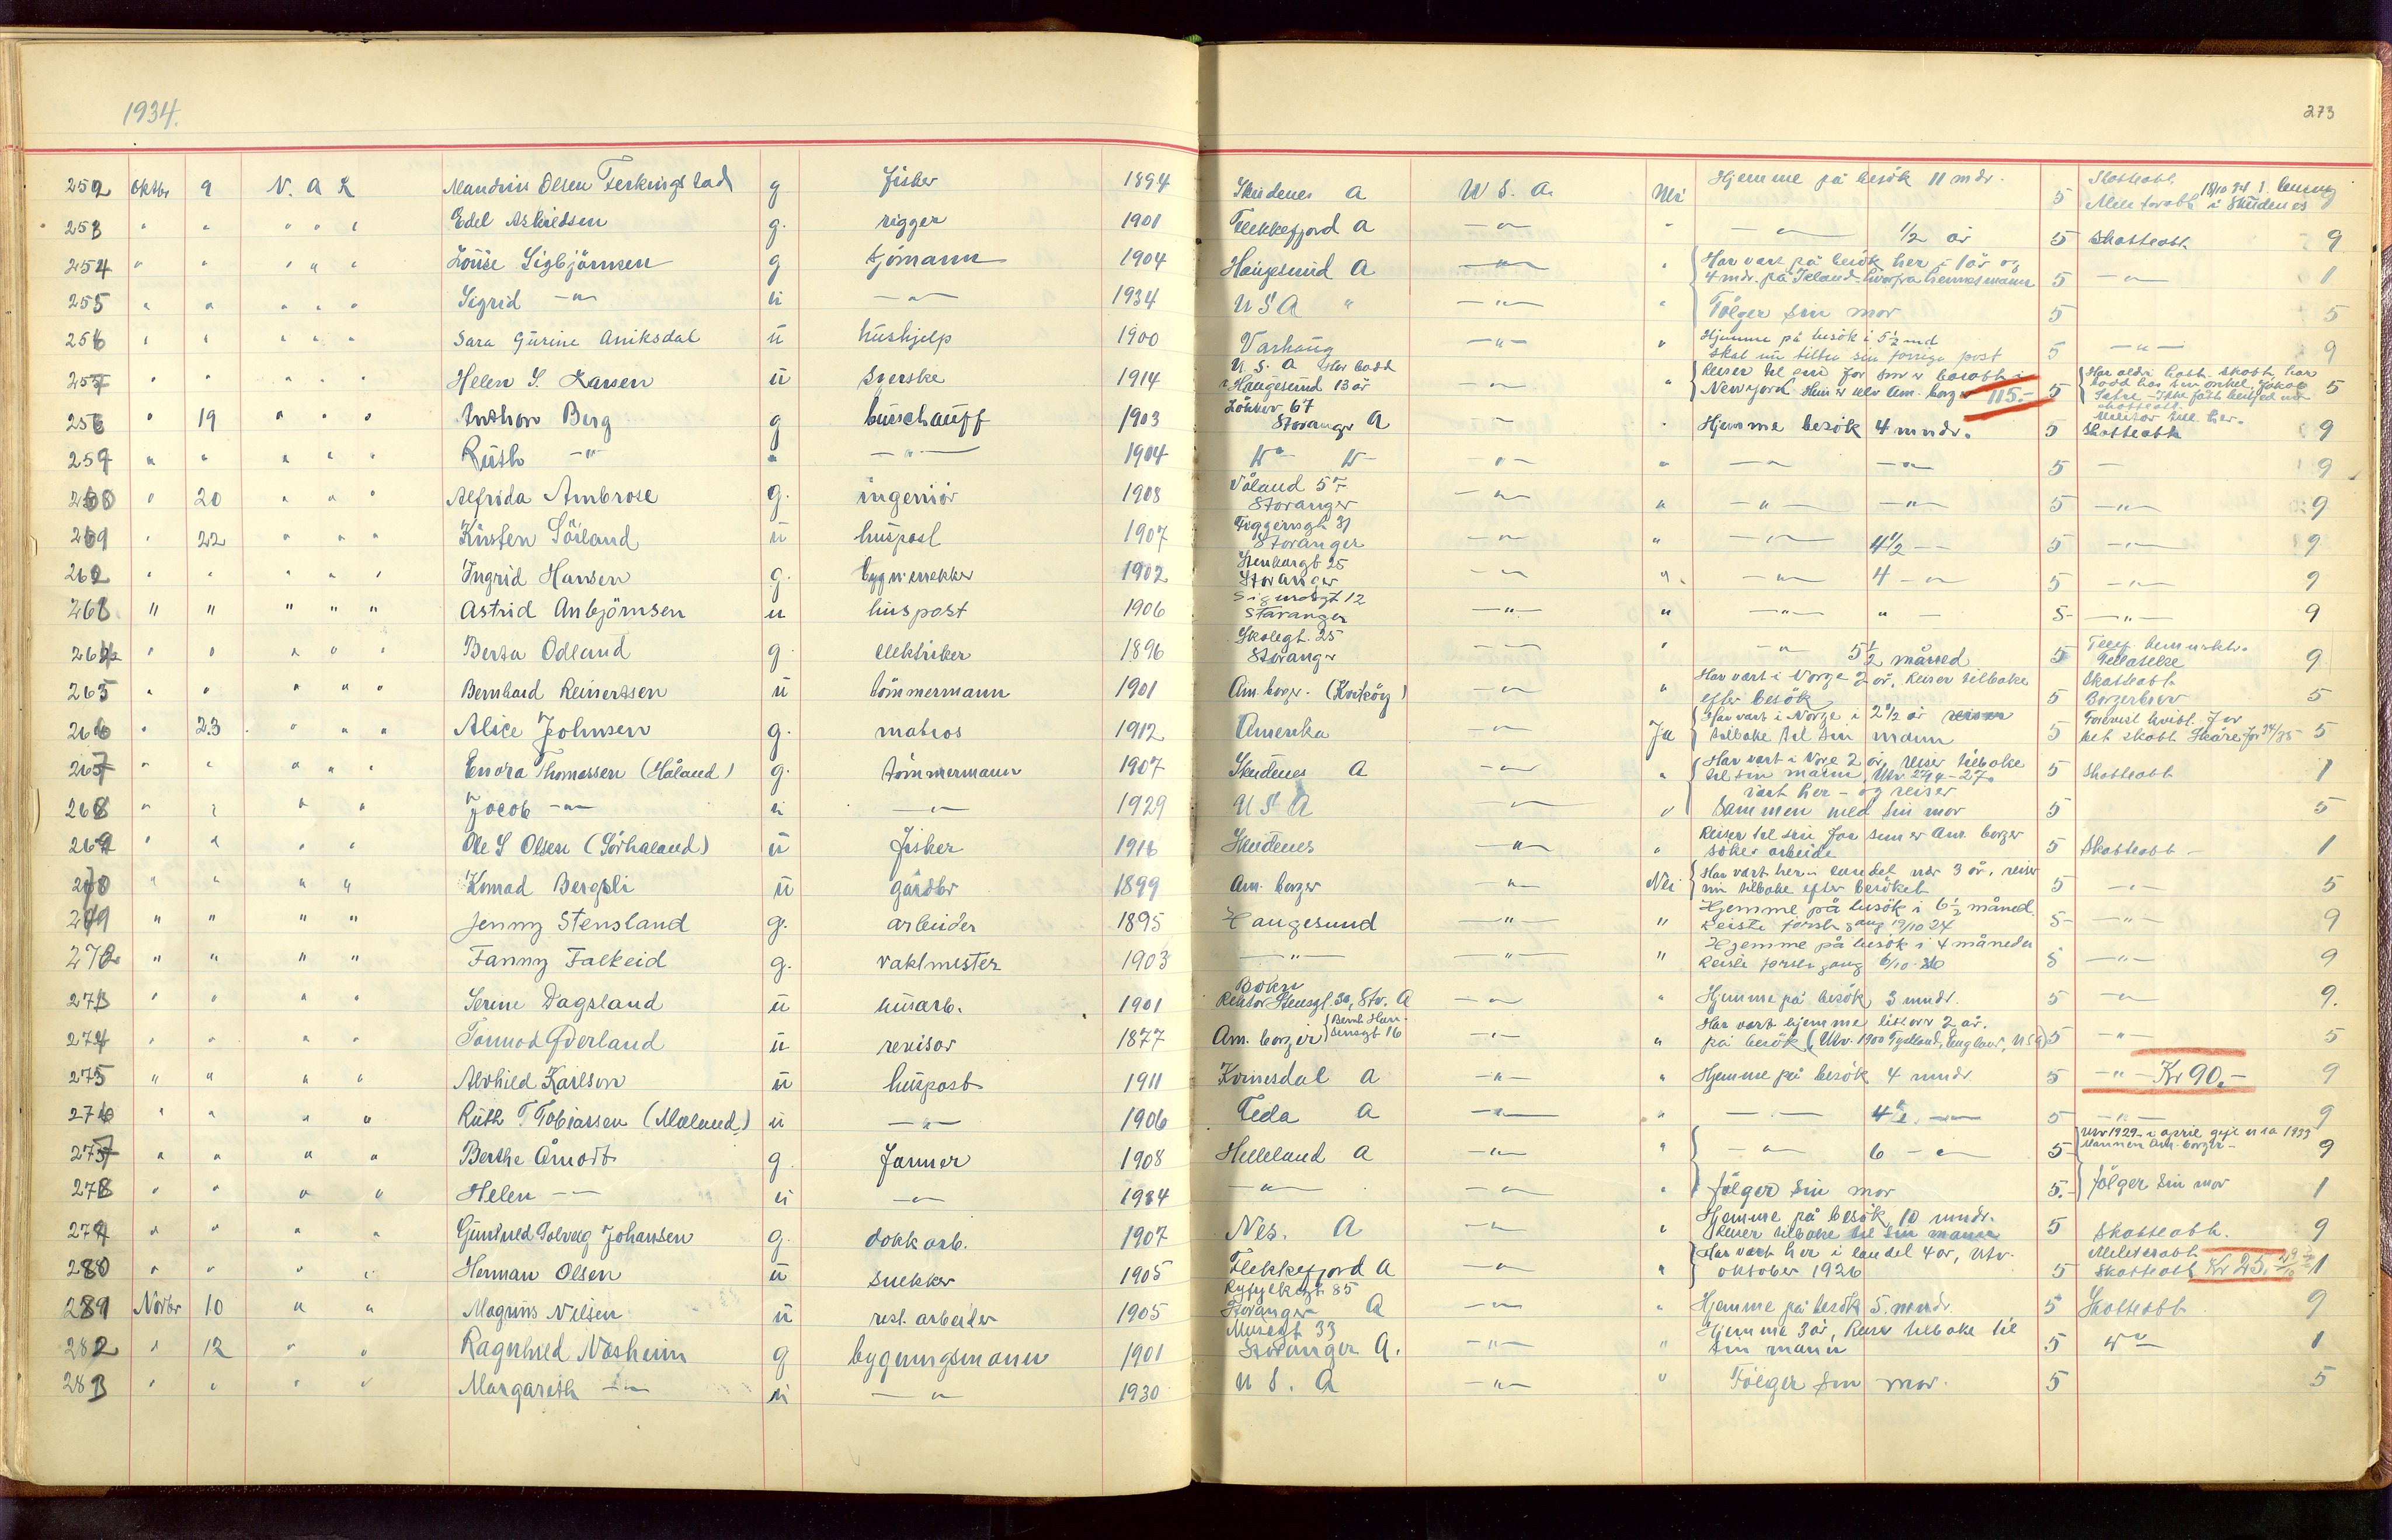 1934.
273
252 Oktbr 9 N. A. L Mandrin Olsen Ferkingstad g fisker 1894 Skudenes A U S. A. Nei Hjemme på besök 11 mdr. 5 Skatteatt. 18/10 34 i Skudenes
253 " " " " " Edel Askildsen g. rigger 1901 Flekkefjord A —"— " —"— 1/2 år 5 Skatteatt 9
254 " " " " " Louise Sigbjörnsen g sjömann 1904 Haugesund A —"— " Har vært på besök her i 1 år og
4 mdr. på Island hvorfra hennes mann 5 —"— 1
255 " " " " " Sigrid —"— ü —"— 1934 U S A " —"— " Fölger sin mor 5 5
256 " " " " " Sara Gurine Aniksdal ü hushjelp 1900 Varhaug —"— " Hjemme på besök i 5 1/2 md
skal nu tiltre sin forrige post 5 —"— 9
257 " " " " " Helen S. Larsen ü syerske 1914 U S. A Har bodd
i Haugesund 13 år —"— " Reiser til sin far som er bosatt i
Newyork. Hun er selv Am. borger 115.- 5 5
258 " 19 " " " Anthon Berg g buschauff 1903 Lökkev 67
Stavanger A — " Hjemme besök 4 mndr. 5 Skatteatt 9
259 " " " " " Ruth —"— " —"— 1904 —"— —"— " —"— —"— 5 — 9
260 " 20 " " " Alfrida Ambrose g. ingeniör 1908 Våland 57
Stavanger —"— " —"— —"— 5 —"— 9
261 " 22 " " " Kirsten Sörland ü huspost 1907 31
Stavanger —"— " —"— 4 1/2 — 5 —"— 9
262 " " " " " Ingrid Hansen g. bygn. snekker 1902 Stenbergt 25
Stavanger —"— " —"— 4 —"— 5 —"— 9
263 " " " " " Astrid Anbjörnsen u huspost 1906 Sigurdsgt 12
Stavanger —"— " —"— " — 5 —"— 9
264 " " " " " Berta Odland g elektriker 1896 Skolegt. 25
Stavanger —"— " —"— 5 1/2 måned 5 9
265 " " " " " Bernhard Reinertsen ü tömmermann 1901 Am. borger. —"— " Har vært i Norge 2 år, Reiser tilbake
efter besök 5 Skatteatt.
Borgerbrev 5
266 " 23 " " " Alice Johnsen g. matros 1912 Amerika —"— Ja Har vært i Norge i 2 1/2 år reiser
tilbake til sin mann 5 bet skatt Skåre for 34/35 5
267 " " " " " Endra Thomassen (Håland) g. tömmermann 1907 Skudenes A —"— " Har vært i Norge 2 år, reiser tilbake
til sin mann, Utv. 27/4-27. 5 Skatteatt 1
268 " " " " Jocob —"— ü —"— 1929 U S A —"— " vært her – og reiser
sammen med sin mor 5 5
269 " " " " Ole S Olsen (Sörhaland) ü fisker 1916 Skudenes —"— " Reiser til sin far som er Am. borger
söker arbeide 5 Skatteatt — 1
270 " " " " Konrad Bergsli ü gårdbr 1899 Am. borger —"— Nei Har vært her i landet når 3 år, reiser
nu tilbake efter besöket 5 —"— 5
271 " " " " Jenny Stensland g. arbeider 1895 Haugesund —"— " Hjemme på besök i 6 1/2 måned
Reiste förste gang 19/10 24 5 —"— 9
272 " " " " Fanny Falkeid g. vaktmester 1903 —"— —"— " Hjemme på besök i 4 måneder
Reiste förste gang 6/10-26 5 —"— 9
273 " " " " Serine Dagsland ü husarb. 1901 Bokn
Rektor Stensgt. 30, Stv. A —"— " Hjemme på besök 3 mndr. 5 —"— 9.
274 " " " " Tormod Överland ü revisor 1877 Am. borger Bernh. Han-
sensgt 16 —"— " Har vært hjemme litt over 2 år.
på besök (Utv. 1900 Tyskland, England, USA) 5 —"— 5
275 " " " " Alvhild Karlson ü huspost 1911 Kvinesdal A —"— " Hjemme på besök 4 mndr 5 —"— Kr 90.- 9
276 " " " " Ruth T Tobiassen (Moelund) ü —"— 1906 Feda A —"— " —"— 4 1/2 —"— 5 —"— 9
277 " " " " Berthe Åmodt g. farmer 1908 Helleland A —"— " —"— 6 —"— 5 Utv 1929 i april gift USA 1933
Mannen Am. borger — 9
278 " " " " Helen —"— ü —"— 1934 —"— —"— " fölger sin mor 5. fölger sin mor 1
279 " " " " Gunhild Solveig Johansen g. dokkarb. 1907 Nes. A —"— " Hjemme på besök 10 mndr.
Reiser tilbake til sin mann 5 Skatteatt. 9
280 " " " " Herman Olsen ü snekker 1905 Flekkefjord A —"— " Har vært her i landet 4 år, Utv.
oktober 1926 5 Militæratt
Skatteatt Kr 25. 1
281 Novbr 10 " " Magnus Nilsen ü rest. arbeider 1905 Ryfylkegt 85
Stavanger A —"— " Hjemme på besök 5. mndr. 5 Skatteatt. 9
282 " 12 " " Ragnhild Nesheim g bygningsmann 1901 Musegt 33
Stavanger A. —"— " Hjemme 3 år, Reiser tilbake til
sin mann 5 —"— 1
283 " " " " Margareth —"— ü —"— 1930 U S. A —"— " Fölger sin mor. 5 5